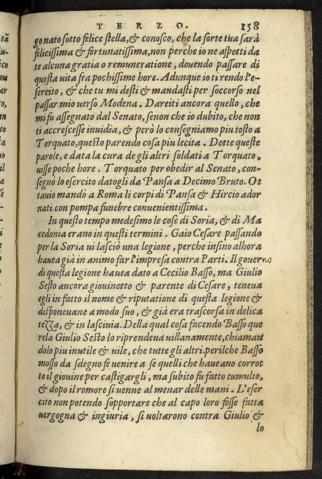 TERZO. 158
gonato sotto felice stella, & conosco, che la sorte tua sarà
felicissima & fortunatissima, non perche io ne aspetti da
te alcuna gratia o remuneratione, douendo passare di
questa uita fra pochissime hore. Adunque io ti rendo l'e-
sercito, & che tu mi desti & mandasti per soccorso nel
passar mio uerso Modena. Dareiti ancora quello, che
mi fu assegnato dal Senato, se non che io dubito, che non
ti accrescesse inuidia, & però lo consegniamo piu tosto a
Torquato, questo parendo cosa piu lecita. Dette queste
parole, e data la cura de gli altri soldati a Torquato,
uisse poche hore. Torquato per obedir al Senato, con-
segnò lo esercito datogli da Pansa a Decimo Bruto. Ot
tauio mandò a Roma li corpi di Pansa & Hircio ador
nati con pompa funebre conuenientissima.
In questo tempo medesimo le cose di Soria, & di Ma
cedonia erano in questi termini. Gaio Cesare passando
per la Soria ui lasciò una legione, perche insino alhora
hauea già in animo far l'impresa contra Parti. Il gouerno
di questa legione hauea dato a Cecilio Basso, ma Giulio
Sesto ancora giouinetto & parente di Cesare, teneua
egli in fatto il nome & riputatione di questa legione &
disponeuane a modo suo, & già era trascorsa in delica
tezza, & in lasciuia. Della qual cosa facendo Basso que
rela Giulio Sesto lo riprendeua uillanamente, chiaman
dolo piu inutile & uile, che tutte gli altri. perilche Basso
mosso da sdegno fe uenire a se quelli che haueano corrot
to il giouine per castigargli, ma subito fu fatto tumulto,
& dopo il romore si uenne al menar delle mani. L'eser
cito non potendo sopportare che al capo loro fosse fatta
uergogna & ingiuria, si uoltarono contra Giulio &
lo